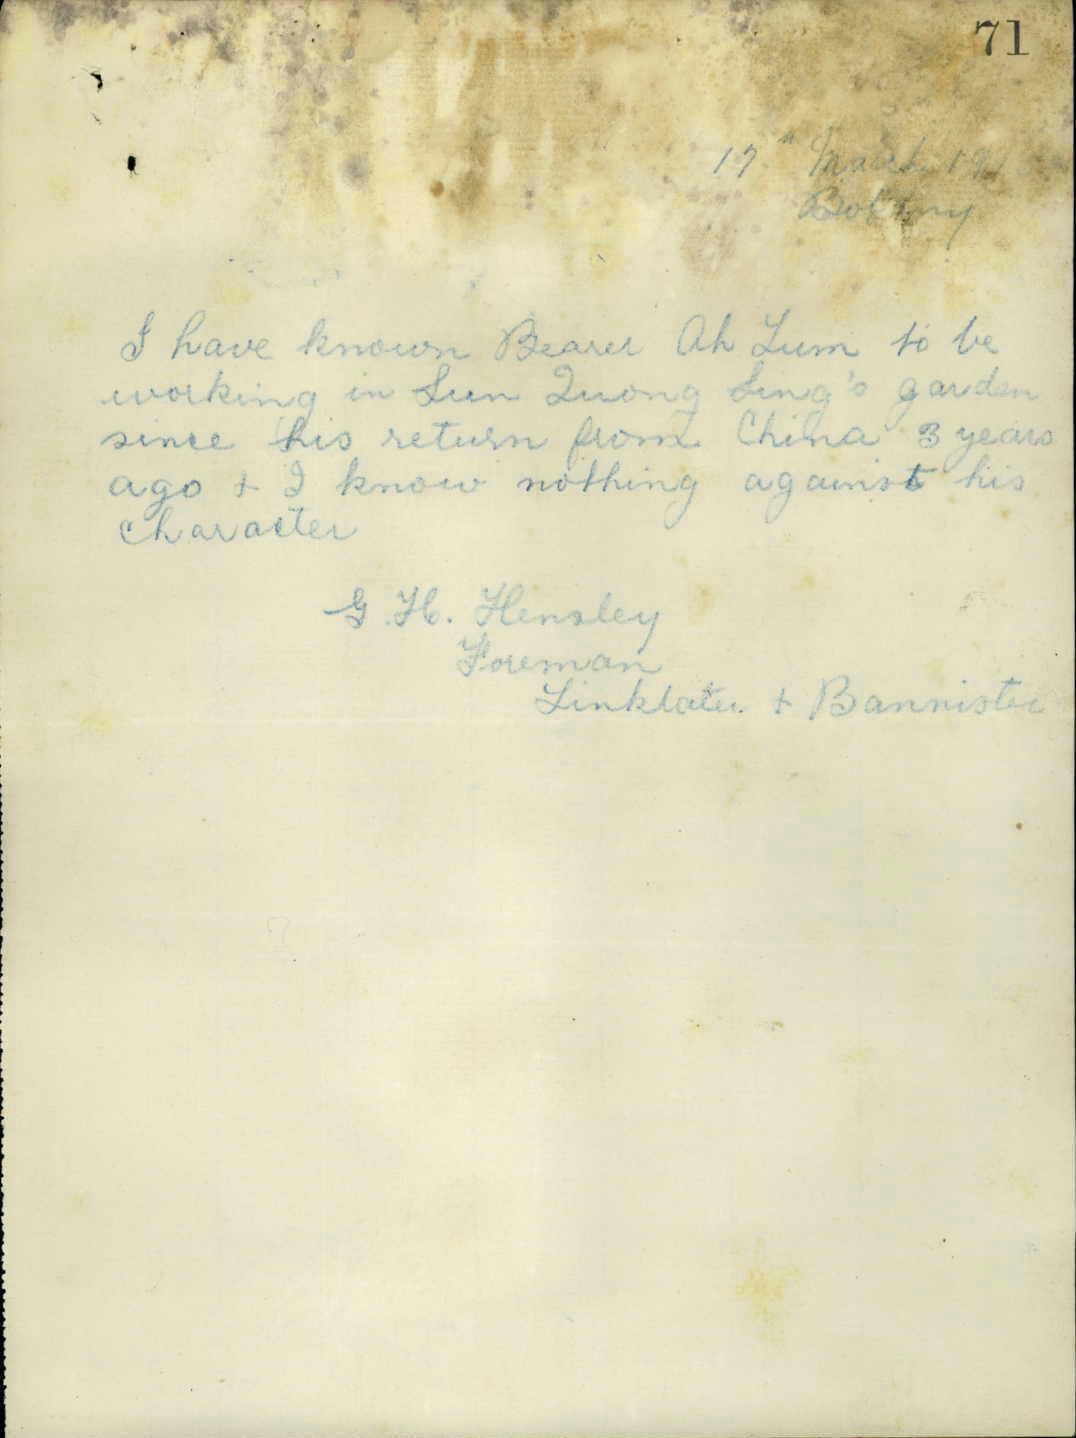 71
17th March 19
Botany
I have known Bearer Ah Lum to be
working in Sun Quong Sing's garden
since his return from China 3 years
ago + I know nothing against his
character
G. H. Hensley
Foreman
Linklater + Bannister